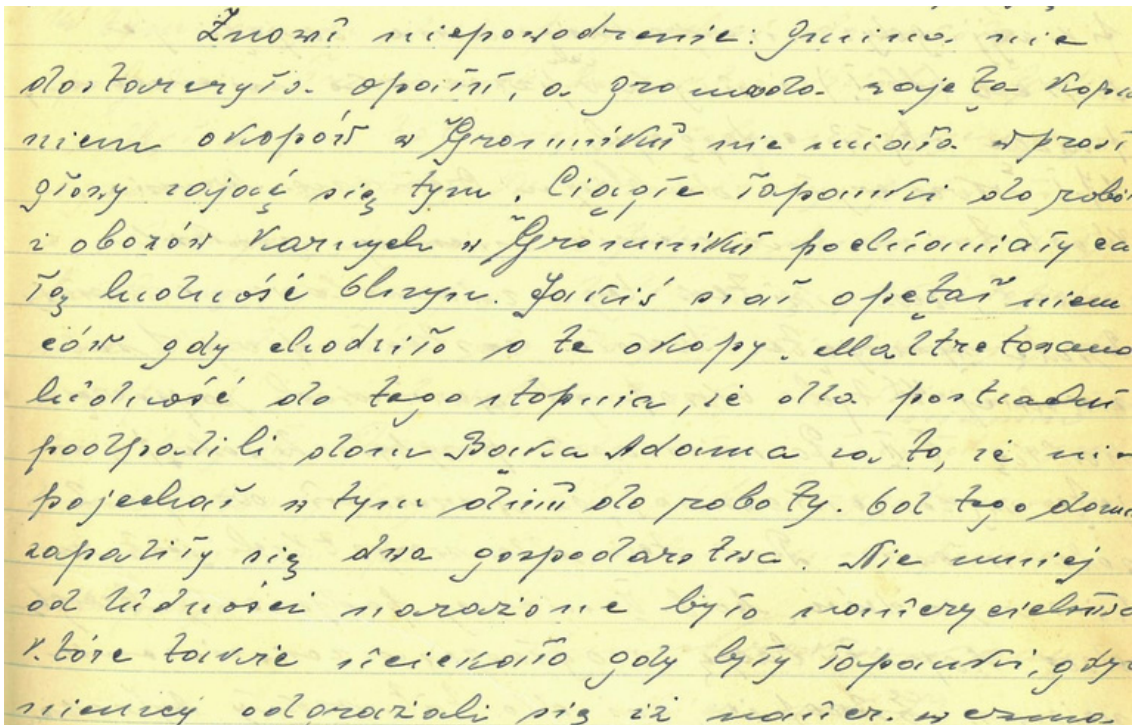 Znowu niepowodzenie: Gmina nie
dostarczyła opału, a gromada zajęta kopa
niem okopów w Gromniku nie miała wprost
głowy zająć się tym. Ciągłe łapanki do robót
i obozów karnych w Gromniku pochłaniały ca
łą ludność Olszyn. Jakiś szał opętał niem
ców gdy chodziło o te okopy. Maltretowano
ludność do tego stopnia, że dla postrachu
podpalili dom Bąka Adama za to, że nie
pojechał w tym dniu do roboty. Od tego domu
zapaliły się dwa gospodarstwa. Nie mniej
od ludności narażone było nauczycielstwo
które także uciekało gdy były łapanki, gdyż
niemcy odgrażali się iż naucz. wezmą